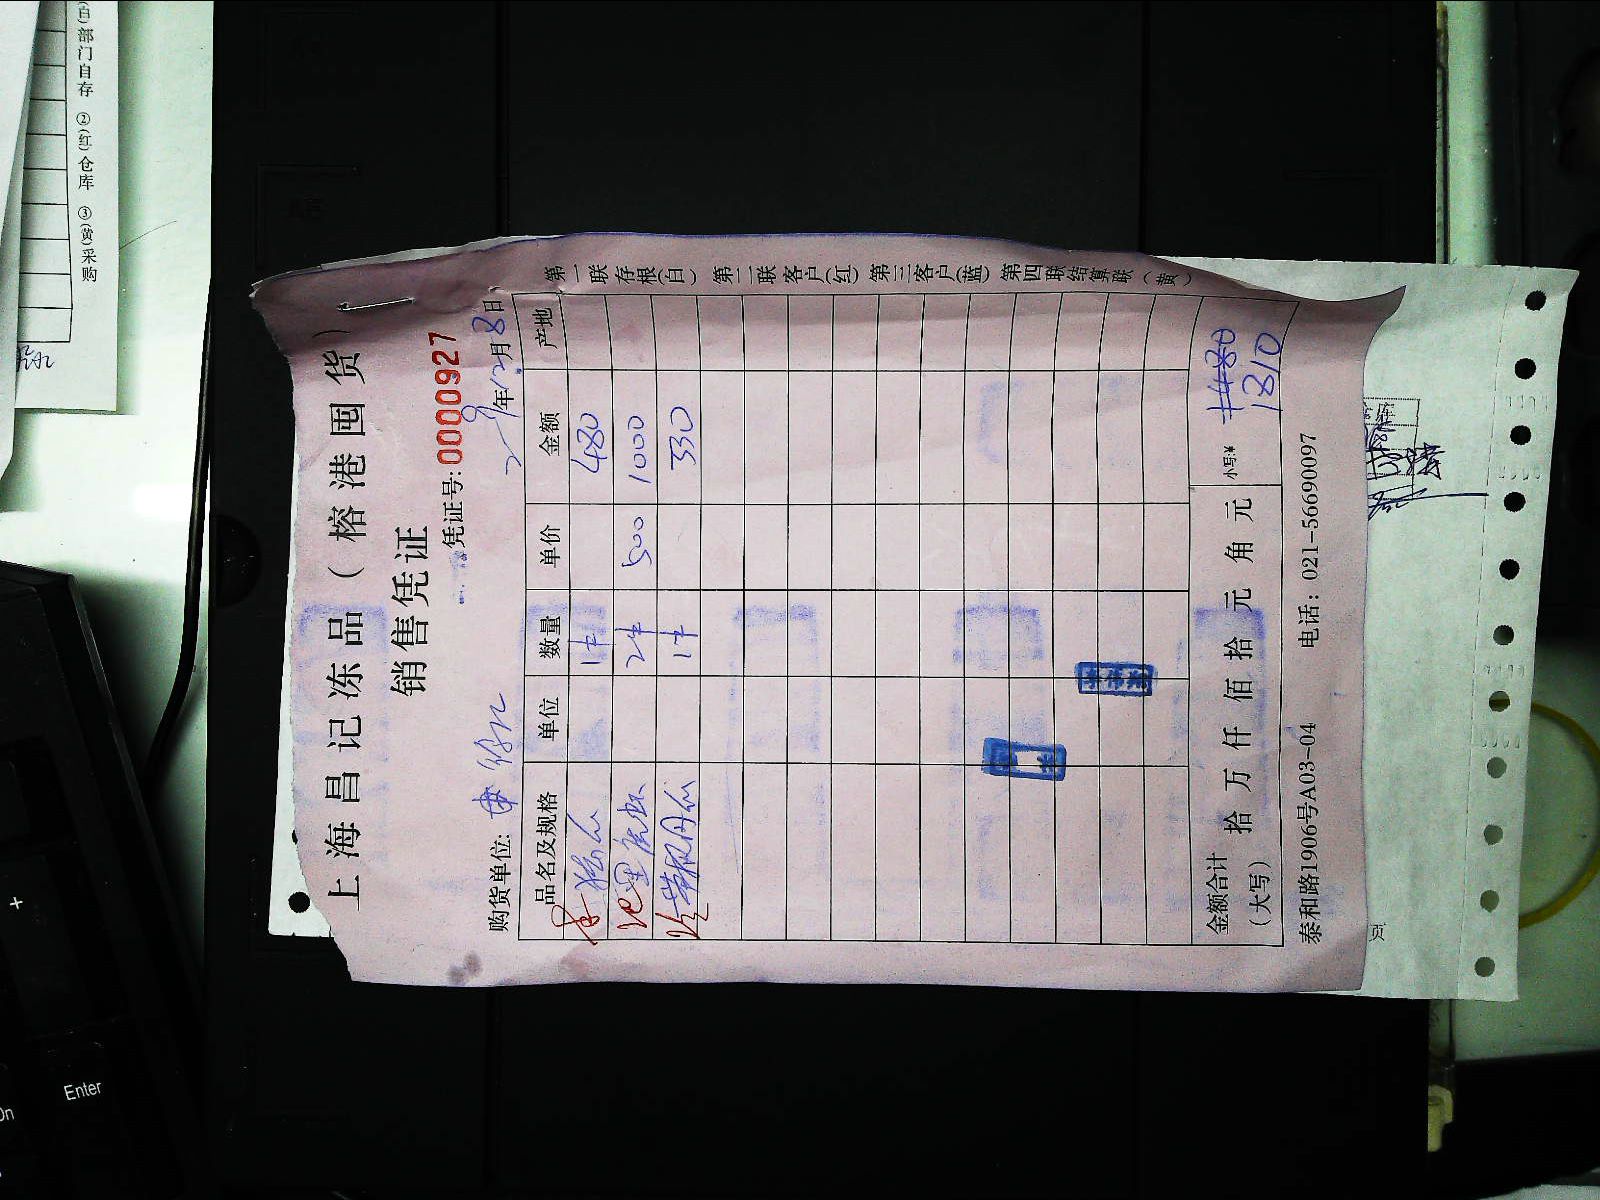 上海昌记冻品（榕港囤货）
销售凭证
凭证号:0000927
购货单位:
年12月8日
品名及规格 单位 数量 单价 金额 产地
1件 480
2件 500 1000
1件 330
金额合计（大写） 拾 万 仟 佰 拾 元 角 元 小写:¥ 1480
1810
泰和路1906号A03-04 电话：021-56690097
第一联存根(白) 第二联客户(红) 第三客户(蓝) 第四联结算联（黄）
(白)部门自存 ②(红)仓库 ③(黄)采购
页
+
On
Enter